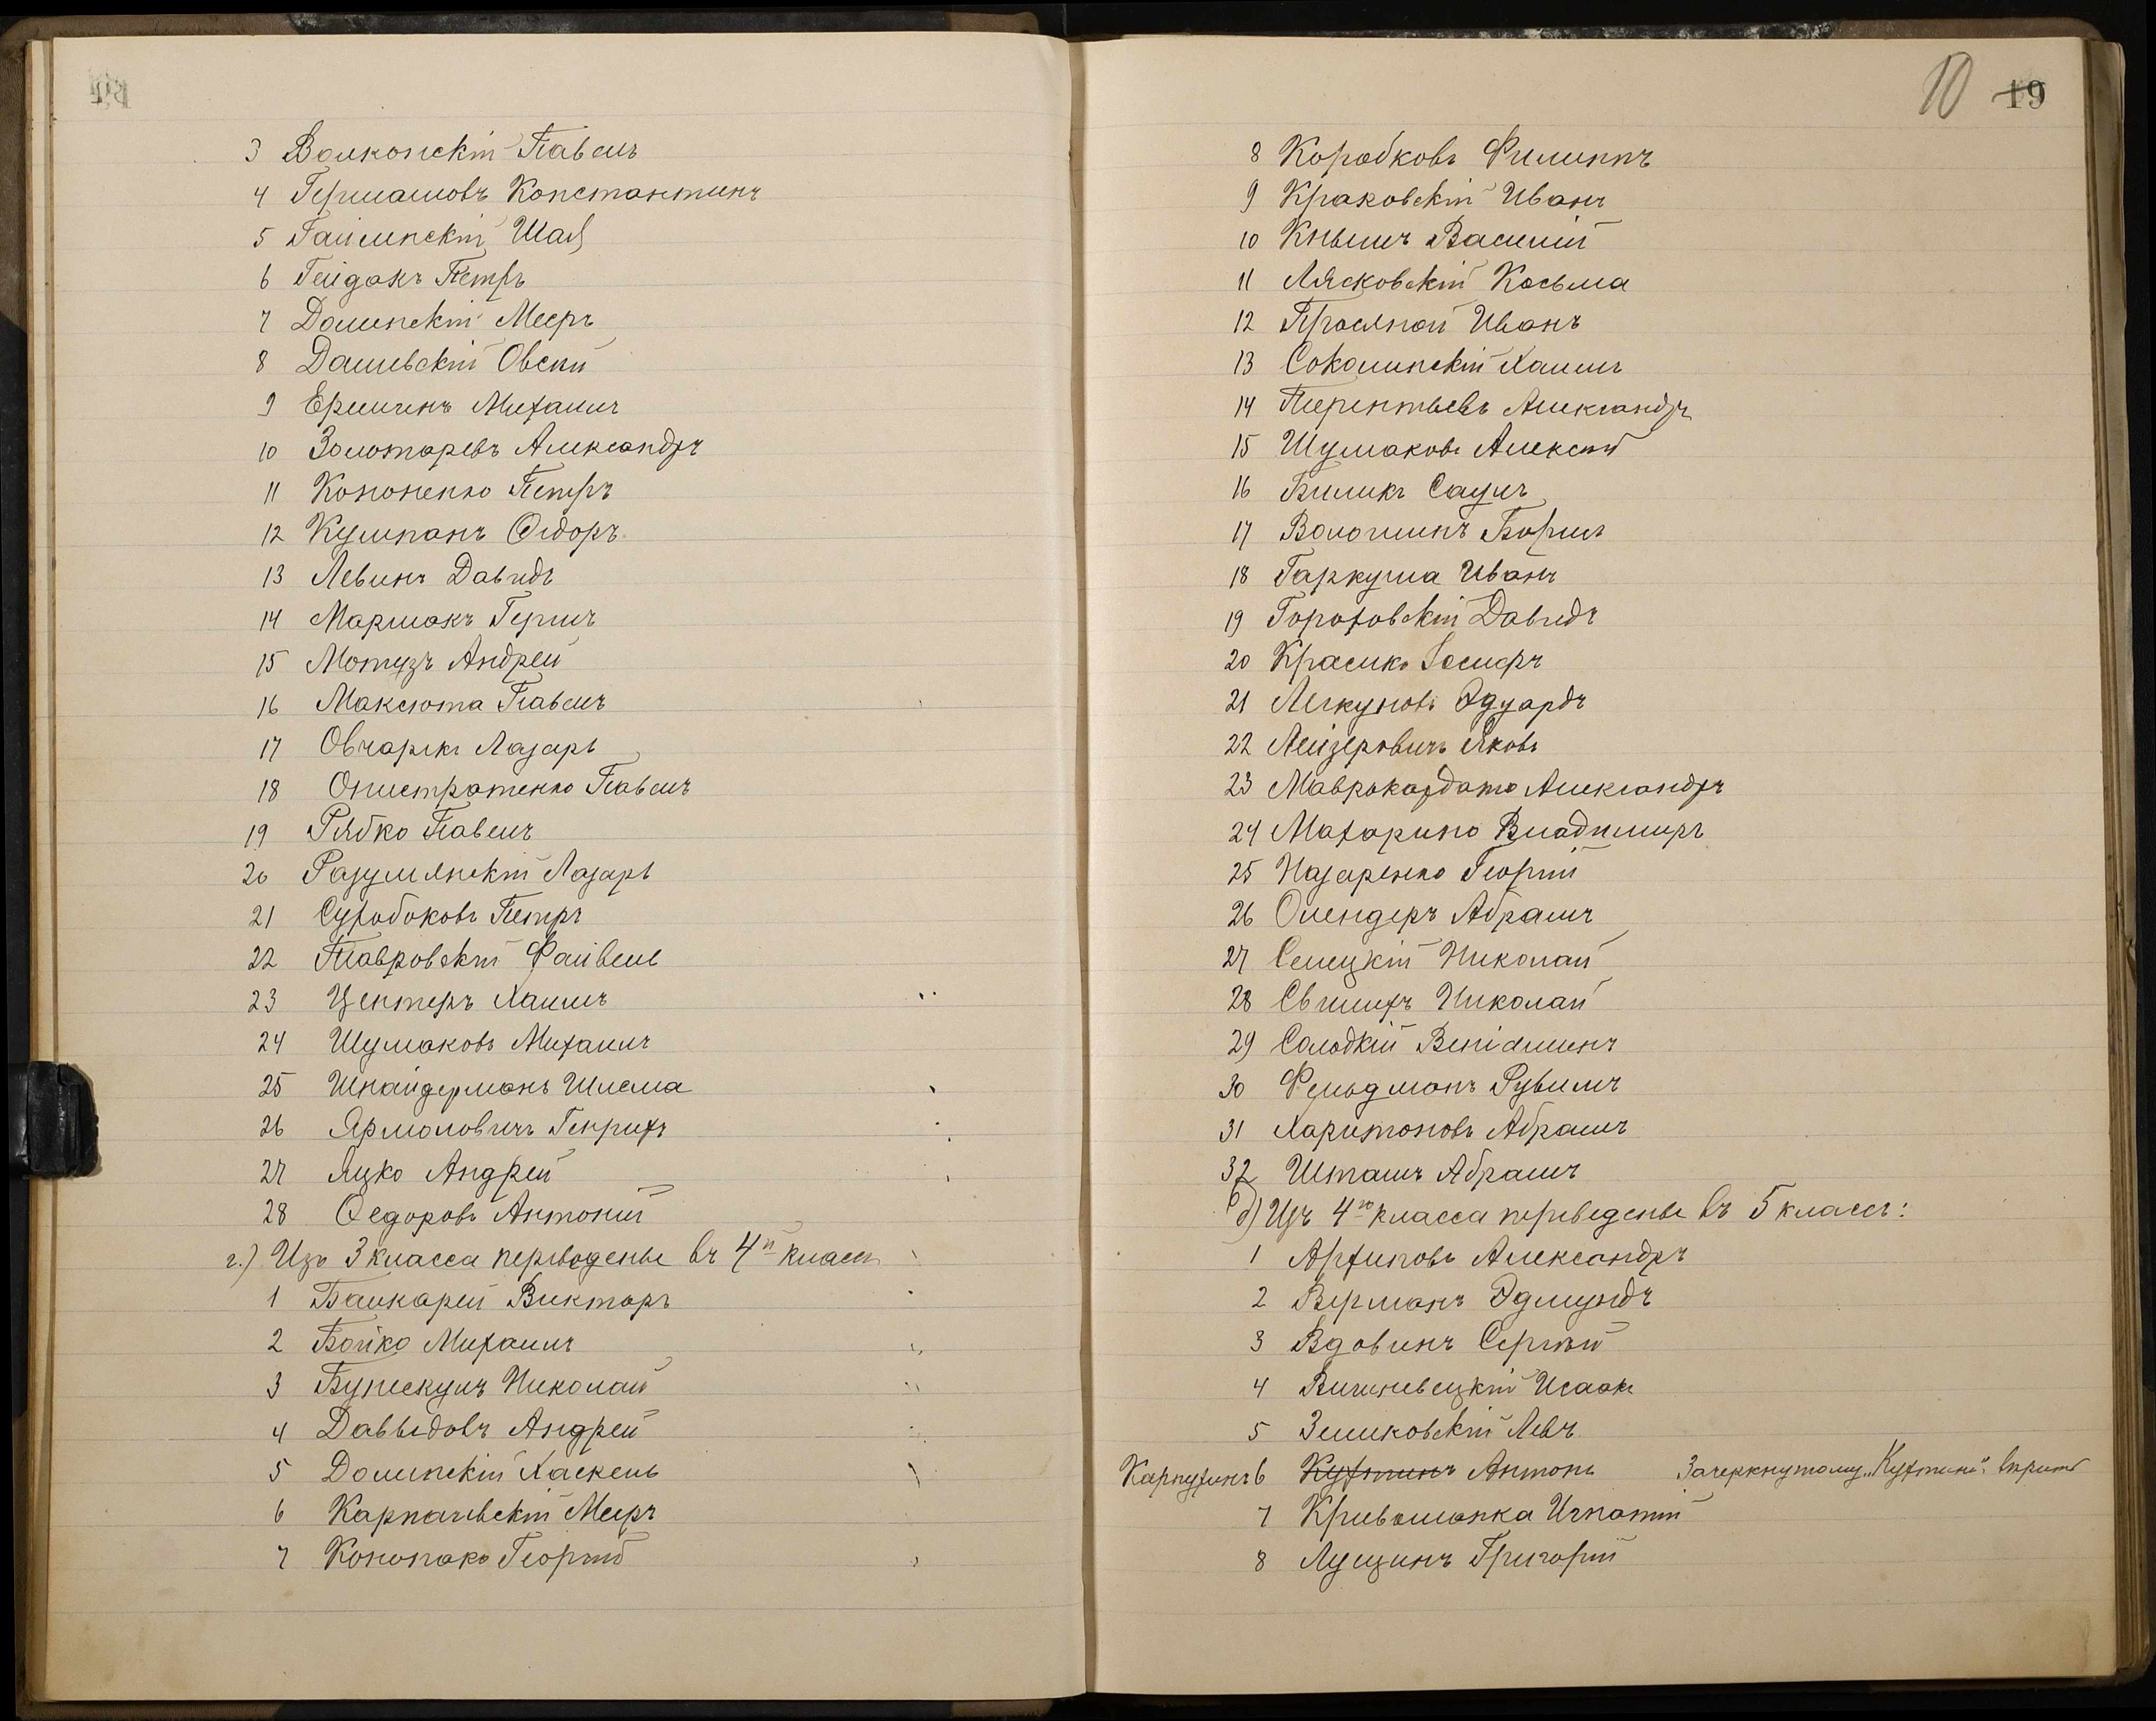 3 Волконскій Павелъ
4 Гермашовъ Константинъ
5 Гайсинскій Шая
6 Гейдакъ Петръ
7 Долинскій Меєръ
8 Дашевскій Овсѣй
9 Ермичекъ Михаилъ
10 Золотаревъ Александръ
11 Кононенко Петръ
12 Кулипанъ Ѳедоръ
13 Левинъ Давидъ
14 Маршакъ Гершъ
15 Мотузъ Андрей
16 Максюта Павелъ
17 Овчарекъ Лазарь
18 Онистратенко Павелъ
19 Рябко Павелъ
20 Разумянскій Лазарь
21 Сухобоковъ Петръ
22 Тавровскій Файвель
23 Центеръ Хаимъ
24 Шумаковъ Михаилъ
25 Шнайдерманъ Шлема
26 Ярмоловичъ Генрихъ
27 Яцко Андрей
28 Ѳедоровъ Антоній
г.) Изъ 3 класса переведены въ 4й классъ
1 Балкарей Викторъ
2 Бойко Михаилъ
3 Бунескулъ Николай
4 Давыдовъ Андрей
5 Долинскій Хаскель
6 Карпачевскій Меєръ
7 Конопако Георгій
10 19
8 Коробковъ Филиппъ
9 Краковскій Иванъ
10 Кнышъ Василій
11 Лясковскій Косьма
12 Просяной Иванъ
13 Соколинскій Хаимъ
14 Терентьевъ Александръ
15 Шумаковъ Алексѣй
16 Биликъ Саулъ
17 Волошинъ Борисъ
18 Гаркуша Иванъ
19 Гороховскій Давидъ
20 Красикъ Іосифъ
21 Легкуновъ Эдуардъ
22 Лейзеровичъ Яковъ
23 Маврокордато Александръ
24 Махарино Владимиръ
25 Назаренко Георгій
26 Олендеръ Абрамъ
27 Селецкій Николай
28 Николай
29 Солодкій Веніаминъ
30 Фельдманъ Рувимъ
31 Харитоновъ Абрамъ
32 Шталь Абрамъ
д) Изъ 4го класса переведены въ 5 классъ:
1 Архиповъ Александръ
2 Верманъ Эдмундъ
3 Вдовинъ Сергѣй
4 Вишневецкій Исаакъ
5 Зеликовскій Левъ
Карпухинъ 6 Кухтинъ Антонъ Зачеркнутому „Кухтинъ“ вѣрить
7 Кривошапка Игнатій
8 Лущинъ Григорій